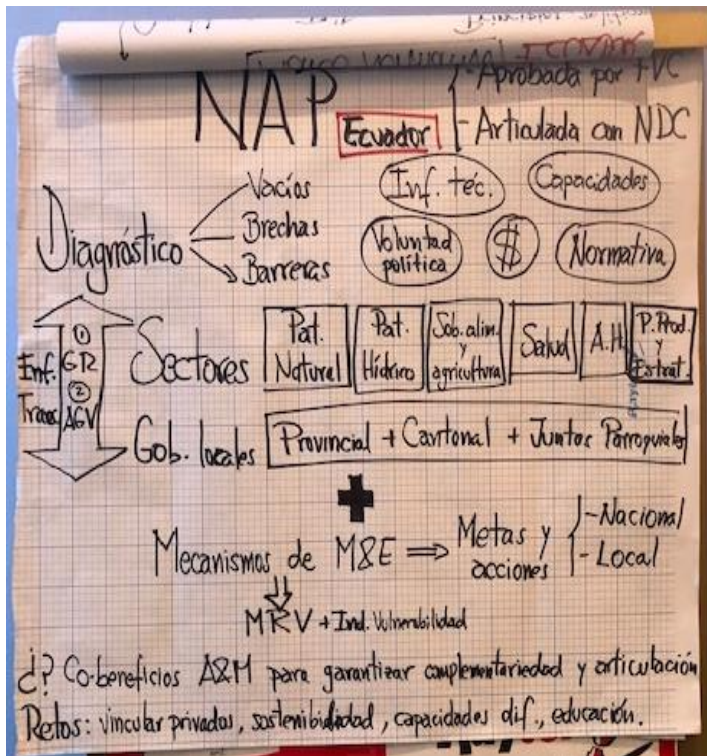 NAP
Ecuador
- Aprobada por
- Articulada con NDC
Diagnóstico
Vacíos
Brechas
Barreras
Inf. téc.
Capacidades
Voluntad política
$
Normativa
Enf. Trans
① GR
② AGV
Sectores
Pat. Natural
Pat. Hídrico
Sob. alim. y agricultura
Salud
A.H.
P. Prod. y Estrat.
Gob. locales
Provincial + Cantonal + Juntas Parroquiales
+
Mecanismos de M&E ⇒ Metas y acciones
- Nacional
- Local
⇓
MRV + Ind. Vulnerabilidad
¿? Co-beneficios A&M para garantizar complementariedad y articulación
Retos: vincular privados, sostenibilidad, capacidades dif., educación.